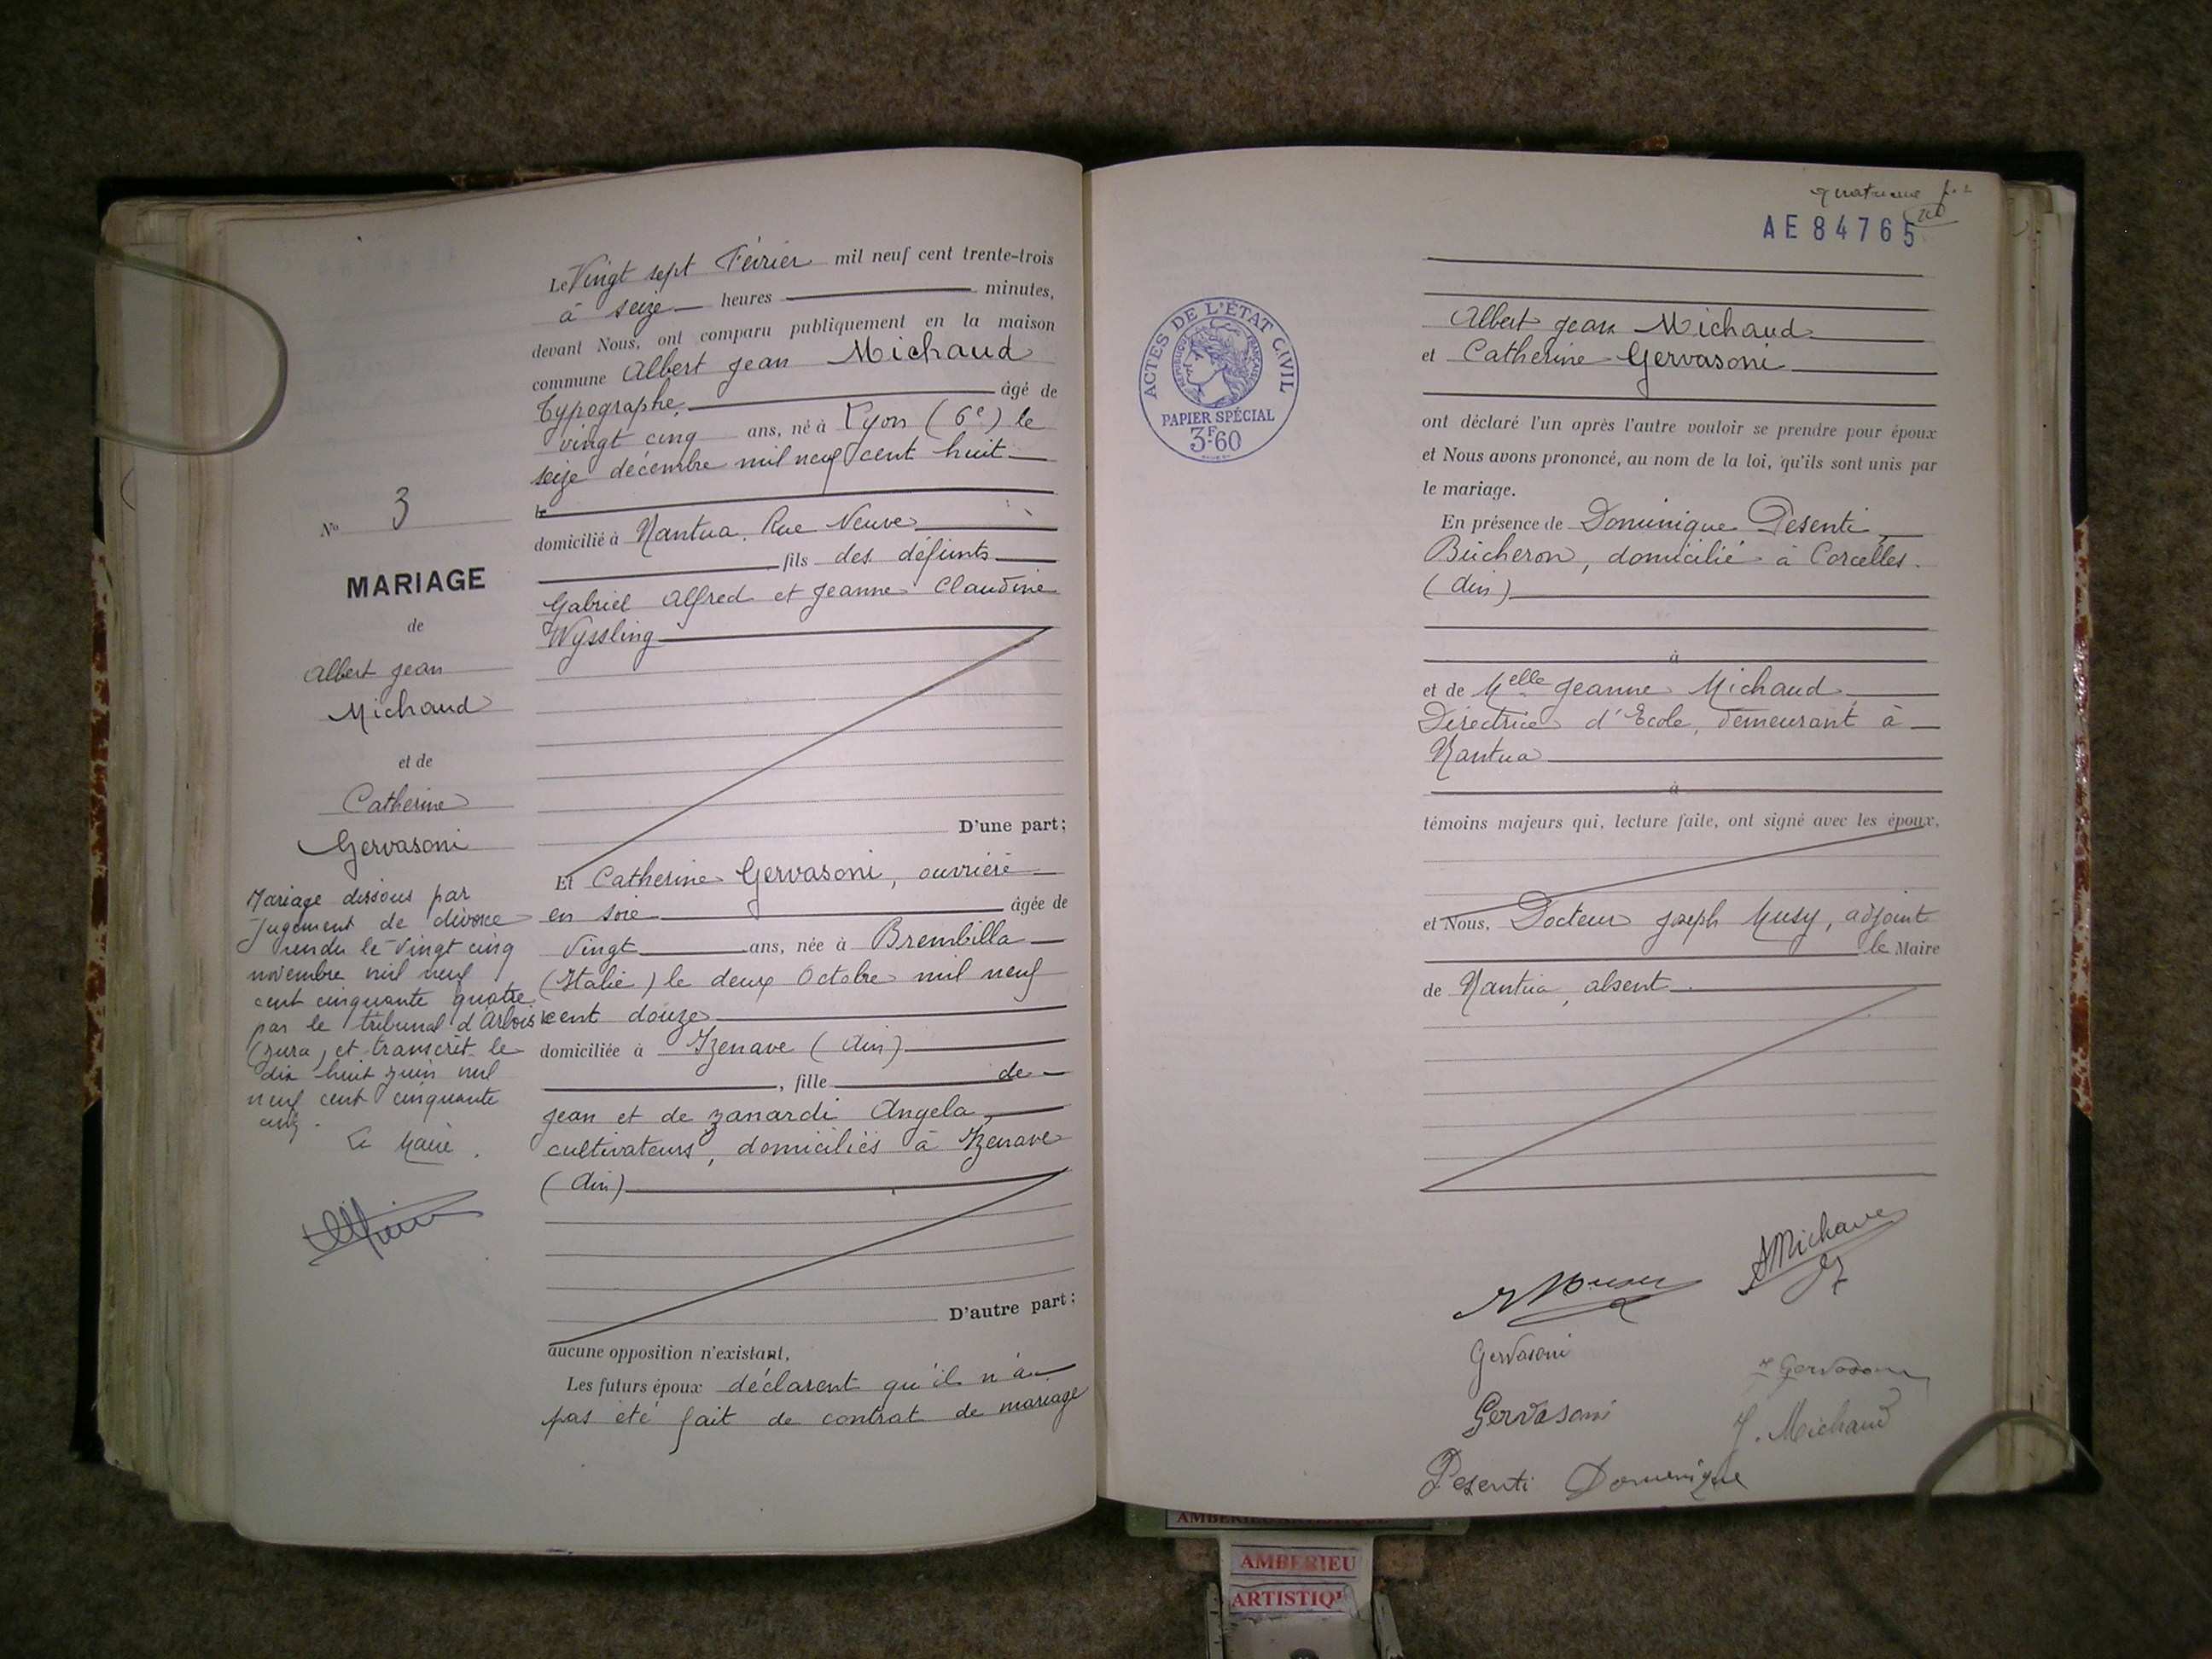 Le Vingt sept Février mil neuf cent trente-trois
à seize heures minutes,
devant Nous, ont comparu publiquement en la maison
commune Albert Jean Michaud
Typographe, âgé de
vingt cinq ans, né à Lyon (6e) le
seize décembre mil neuf cent huit
le
domicilié à Nantua, Rue Neuve
fils des défunts
Gabriel Alfred et Jeanne Claudine
Wyssling
D'une part;
Et Catherine Gervasoni, ouvrière
en soie âgée de
vingt ans, née à Brembilla
(Italie) le deux Octobre mil neuf
le cent douze
domiciliée à Izenave (Ain)
, fille de
Jean et de Zanardi Angela,
cultivateurs, domiciliés à Izenave
(Ain)
D'autre part;
aucune opposition n'existant,
Les futurs époux déclarent qu'il n'a
pas été fait de contrat de mariage
No 3
MARIAGE
de
Albert Jean
Michaud
et de
Catherine
Gervasoni
Mariage dissous par
jugement de divorce
rendu le vingt cinq
novembre mil neuf
cent cinquante quatre
par le tribunal d'Arbois
(Jura, et transcrit le
dix huit juin mil
neuf cent cinquante
cinq.
Le Maire.
AE 84765
ACTES DE L'ÉTAT CIVIL
RÉPUBLIQUE FRANÇAISE
PAPIER SPÉCIAL
3F60
Albert Jean Michaud
et Catherine Gervasoni
ont déclaré l'un après l'autre vouloir se prendre pour époux
et Nous avons prononcé, au nom de la loi, qu'ils sont unis par
le mariage.
En présence de Dominique Pesenti,
Bûcheron, domicilié à Corcelles.
(Ain)
à
et de Melle Jeanne Michaud,
Directrice d'Ecole, demeurant à
Nantua
à
témoins majeurs qui, lecture faite, ont signé avec les époux,
et Nous, Docteur Joseph Musy, adjoint
le Maire
de Nantua, absent.
AMichaud
Gervasoni
Gervasoni
Gervasoni
J. Michaud
Pesenti Dominique
AMBERIEU ARTISTIQUE
AMBERIEU
ARTISTIQU